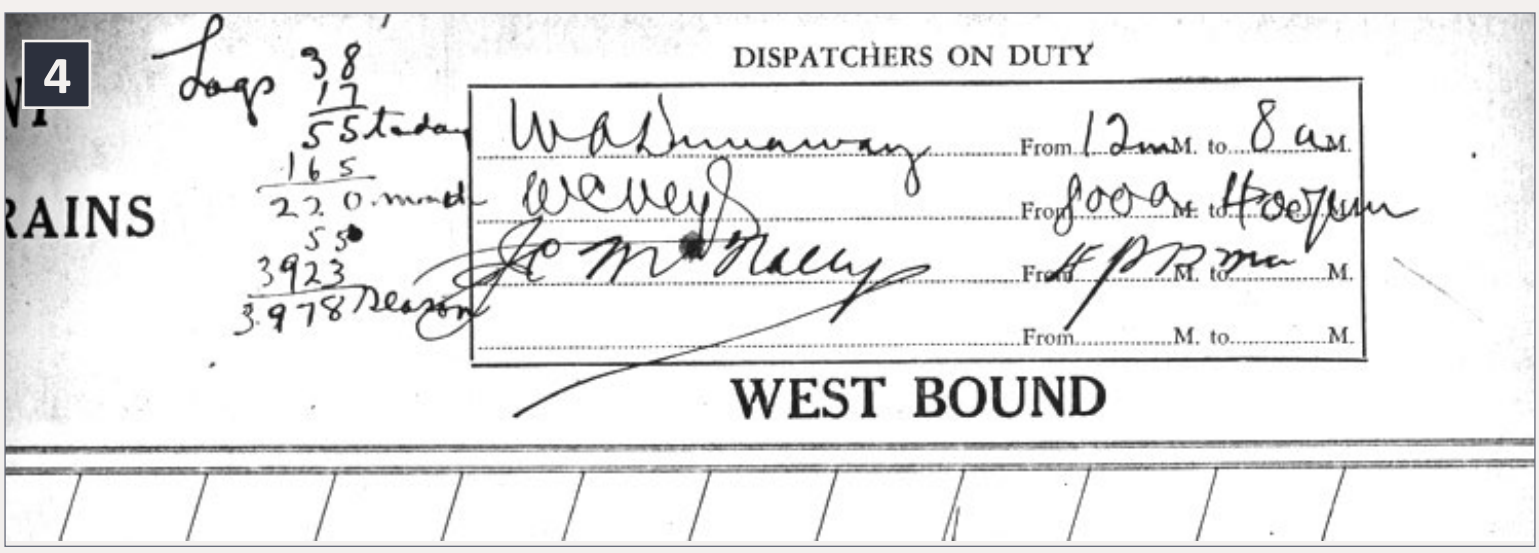 4
Logs 38
17
55 today
165
220 month
55
3923
3978 season
DISPATCHERS ON DUTY
W A Dunaway From 12m M. to 8 a M.
From 800a M. to 400pm M.
From 4 P M. to M.
From M. to M.
RAINS
WEST BOUND